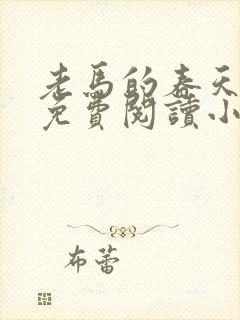 老馬的春天
免費閱讀小
布蕾